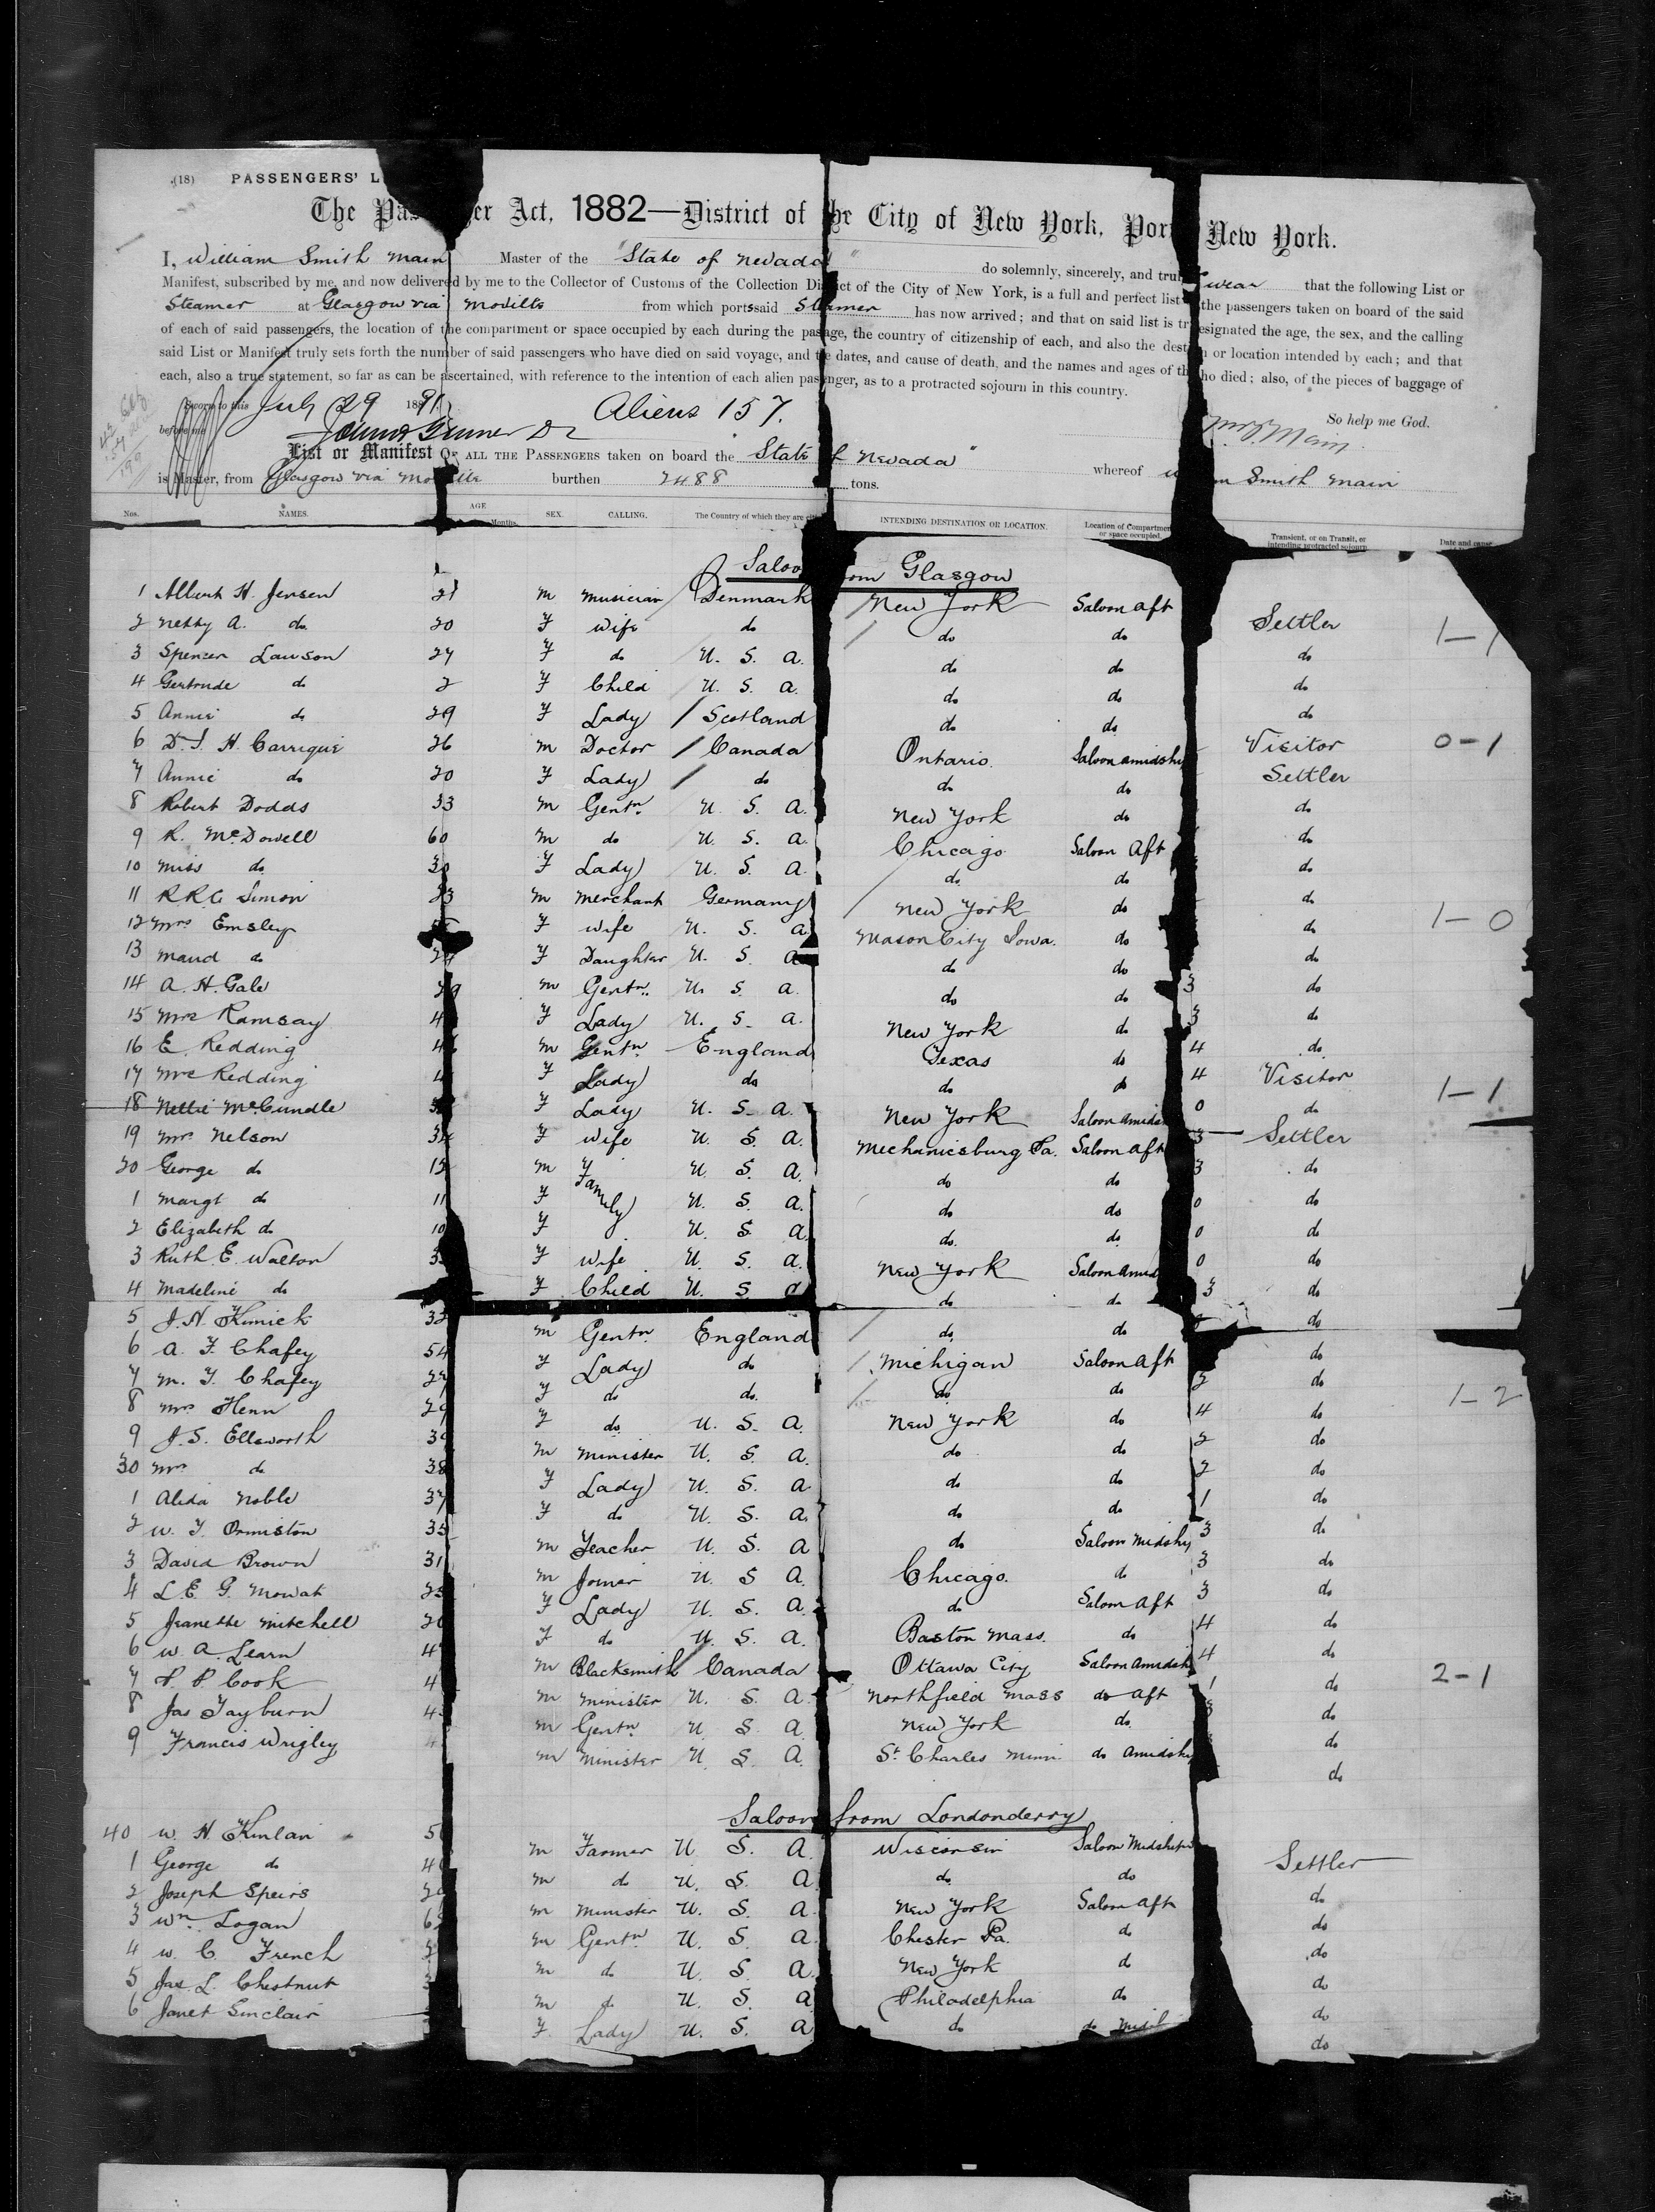 (18) PASSENGERS' L
The Pas er Act, 1882—District of the City of New York, Port New York.
I, William Smith Main Master of the "State of Nevada" do solemnly, sincerely, and truly swear that the following List or
Manifest, subscribed by me, and now delivered by me to the Collector of Customs of the Collection District of the City of New York, is a full and perfect list the passengers taken on board of the said
Steamer at Glasgow via Moville from which ports said Steamer has now arrived; and that on said list is tr esignated the age, the sex, and the calling
of each of said passengers, the location of the compartment or space occupied by each during the passage, the country of citizenship of each, and also the dest n or location intended by each; and that
said List or Manifest truly sets forth the number of said passengers who have died on said voyage, and the dates, and cause of death, and the names and ages of th ho died; also, of the pieces of baggage of
each, also a true statement, so far as can be ascertained, with reference to the intention of each alien passenger, as to a protracted sojourn in this country.
Sworn to this July 29 1891 Aliens 157. So help me God,
before me Main
List or Manifest OF ALL THE PASSENGERS taken on board the "State of Nevada" whereof
is Master, from Glasgow via Moville burthen 2488 tons. Smith Main
Nos. NAMES. AGE Months. SEX. CALLING. The Country of which they are INTENDING DESTINATION OR LOCATION. Location of Compartment or space occupied. Transient, or on Transit, or intending protracted sojourn Date and cause
Saloon from Glasgow
1 Albert H. Jensen 21 M Musician Denmark New York Saloon Aft Settler 1-1
2 Netty A. do 20 F Wife do do do do
3 Spencer Lawson 27 F do U. S. A. do do do
4 Gertrude do 2 F Child U. S. A. do do do
5 Annie do 29 F Lady Scotland do do Visitor 0-1
6 D. J. H. Carrique 26 M Doctor Canada Ontario Saloon amidship Settler
7 Annie do 20 F Lady do do do do
8 Robert Dodds 33 M Gentn U. S. A. New York do do
9 R. McDowell 60 M do U. S. A. Chicago Saloon Aft do
10 Miss do 30 F Lady U. S. A. do do do
11 Simon 23 M Merchant Germany New York do do 1-0
12 Mrs Emsley F Wife U. S. A. Mason City Iowa. do do
13 Maud do F Daughter U. S. A. do do 3 do
14 A. H. Gale 29 M Gentn. U. S. A. do do 3 do
15 Mrs Ramsay 4 F Lady U. S. A. New York do 4 do
16 E. Redding 4 M Gentn England Texas do 4 Visitor 1-1
17 Mrs Redding 4 F Lady do do do 0 do
18 Nellie McCundle F Lady U. S. A. New York Saloon Amids 3 Settler
19 Mrs Nelson 3 F Wife U. S. A. Mechanicsburg Pa. Saloon Aft 3 do
20 George do 12 M Family U. S. A. do do 0 do
1 Margt do 11 F U. S. A. do do 0 do
2 Elizabeth do 10 F U. S. A. do do 0 do
3 Ruth E. Walton 3 F Wife U. S. A. New York Saloon Amid 3 do
4 Madeline do F Child U. S. A. do do do
5 J. H. Kimick 32 M Gentn England do do do
6 A. F. Chafey 54 F Lady do Michigan Saloon Aft 2 do
7 M. F. Chafey 27 F do do do do 4 do 1-2
8 Mrs Henn 29 F do U. S. A. New York do 2 do
9 J. S. Ellsworth 39 M Minister U. S. A. do do 2 do
30 Mrs do 38 F Lady U. S. A. do do 1 do
1 Alida Noble 37 F do U. S. A. do do 3 do
2 W. T. Ormiston 35 M Teacher U. S. A. do Saloon Midship 3 do
3 David Brown 31 M Joiner U. S. A. Chicago. do 3 do
4 L. E. G. Mowat 25 F Lady U. S. A. do Saloon Aft 4 do
5 Jeanette Mitchell 20 F do U. S. A. Boston Mass. do 4 do
6 W. A. Learn 4 M Blacksmith Canada Ottawa City Saloon Amidsh 1 do 2-1
7 P. P. Cook 4 M Minister U. S. A. Northfield Mass do Aft do
8 Jas Tayburn 4 M Gentn U. S. A. New York do do
9 Francis Wrigley 4 M Minister U. S. A. St. Charles Minn do Amidship do
Saloon from Londonderry
40 W. H. Kinlan 5 M Farmer U. S. A. Wisconsin Saloon Midships Settler
1 George do 4 M do U. S. A. do do do
2 Joseph Speirs M Minister U. S. A. New York Saloon Aft do
3 Wm. Logan 6 M Gentn U. S. A. Chester Pa. do do
4 W. C. French M do U. S. A. New York do do
5 Jas. L. Chestnut M do U. S. A. Philadelphia do do
6 Janet Sinclair F Lady U. S. A. do do Mid do